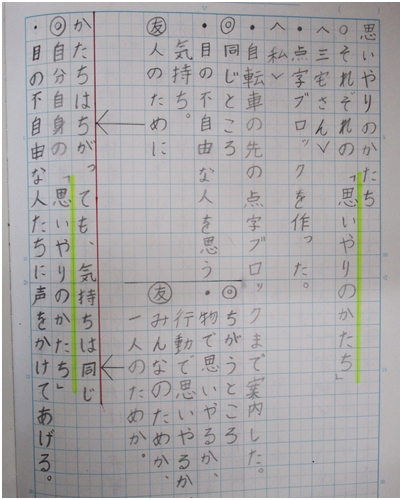 思いやりのかたち
○それぞれの「思いやりのかたち」
＜三宅さん＞
・点字ブロックを作った。
＜私＞
・自転車の先の点字ブロックまで案内した。
◎同じところ
・目の不自由な人を思う
気持ち。
友 人のために
◎ちがうところ
・物で思いやるか、
行動で思いやるか
友 みんなのためか、
一人のためか。
かたちはちがっても、気持ちは同じ
◎自分自身の「思いやりのかたち」
・目の不自由な人たちに声をかけてあげる。